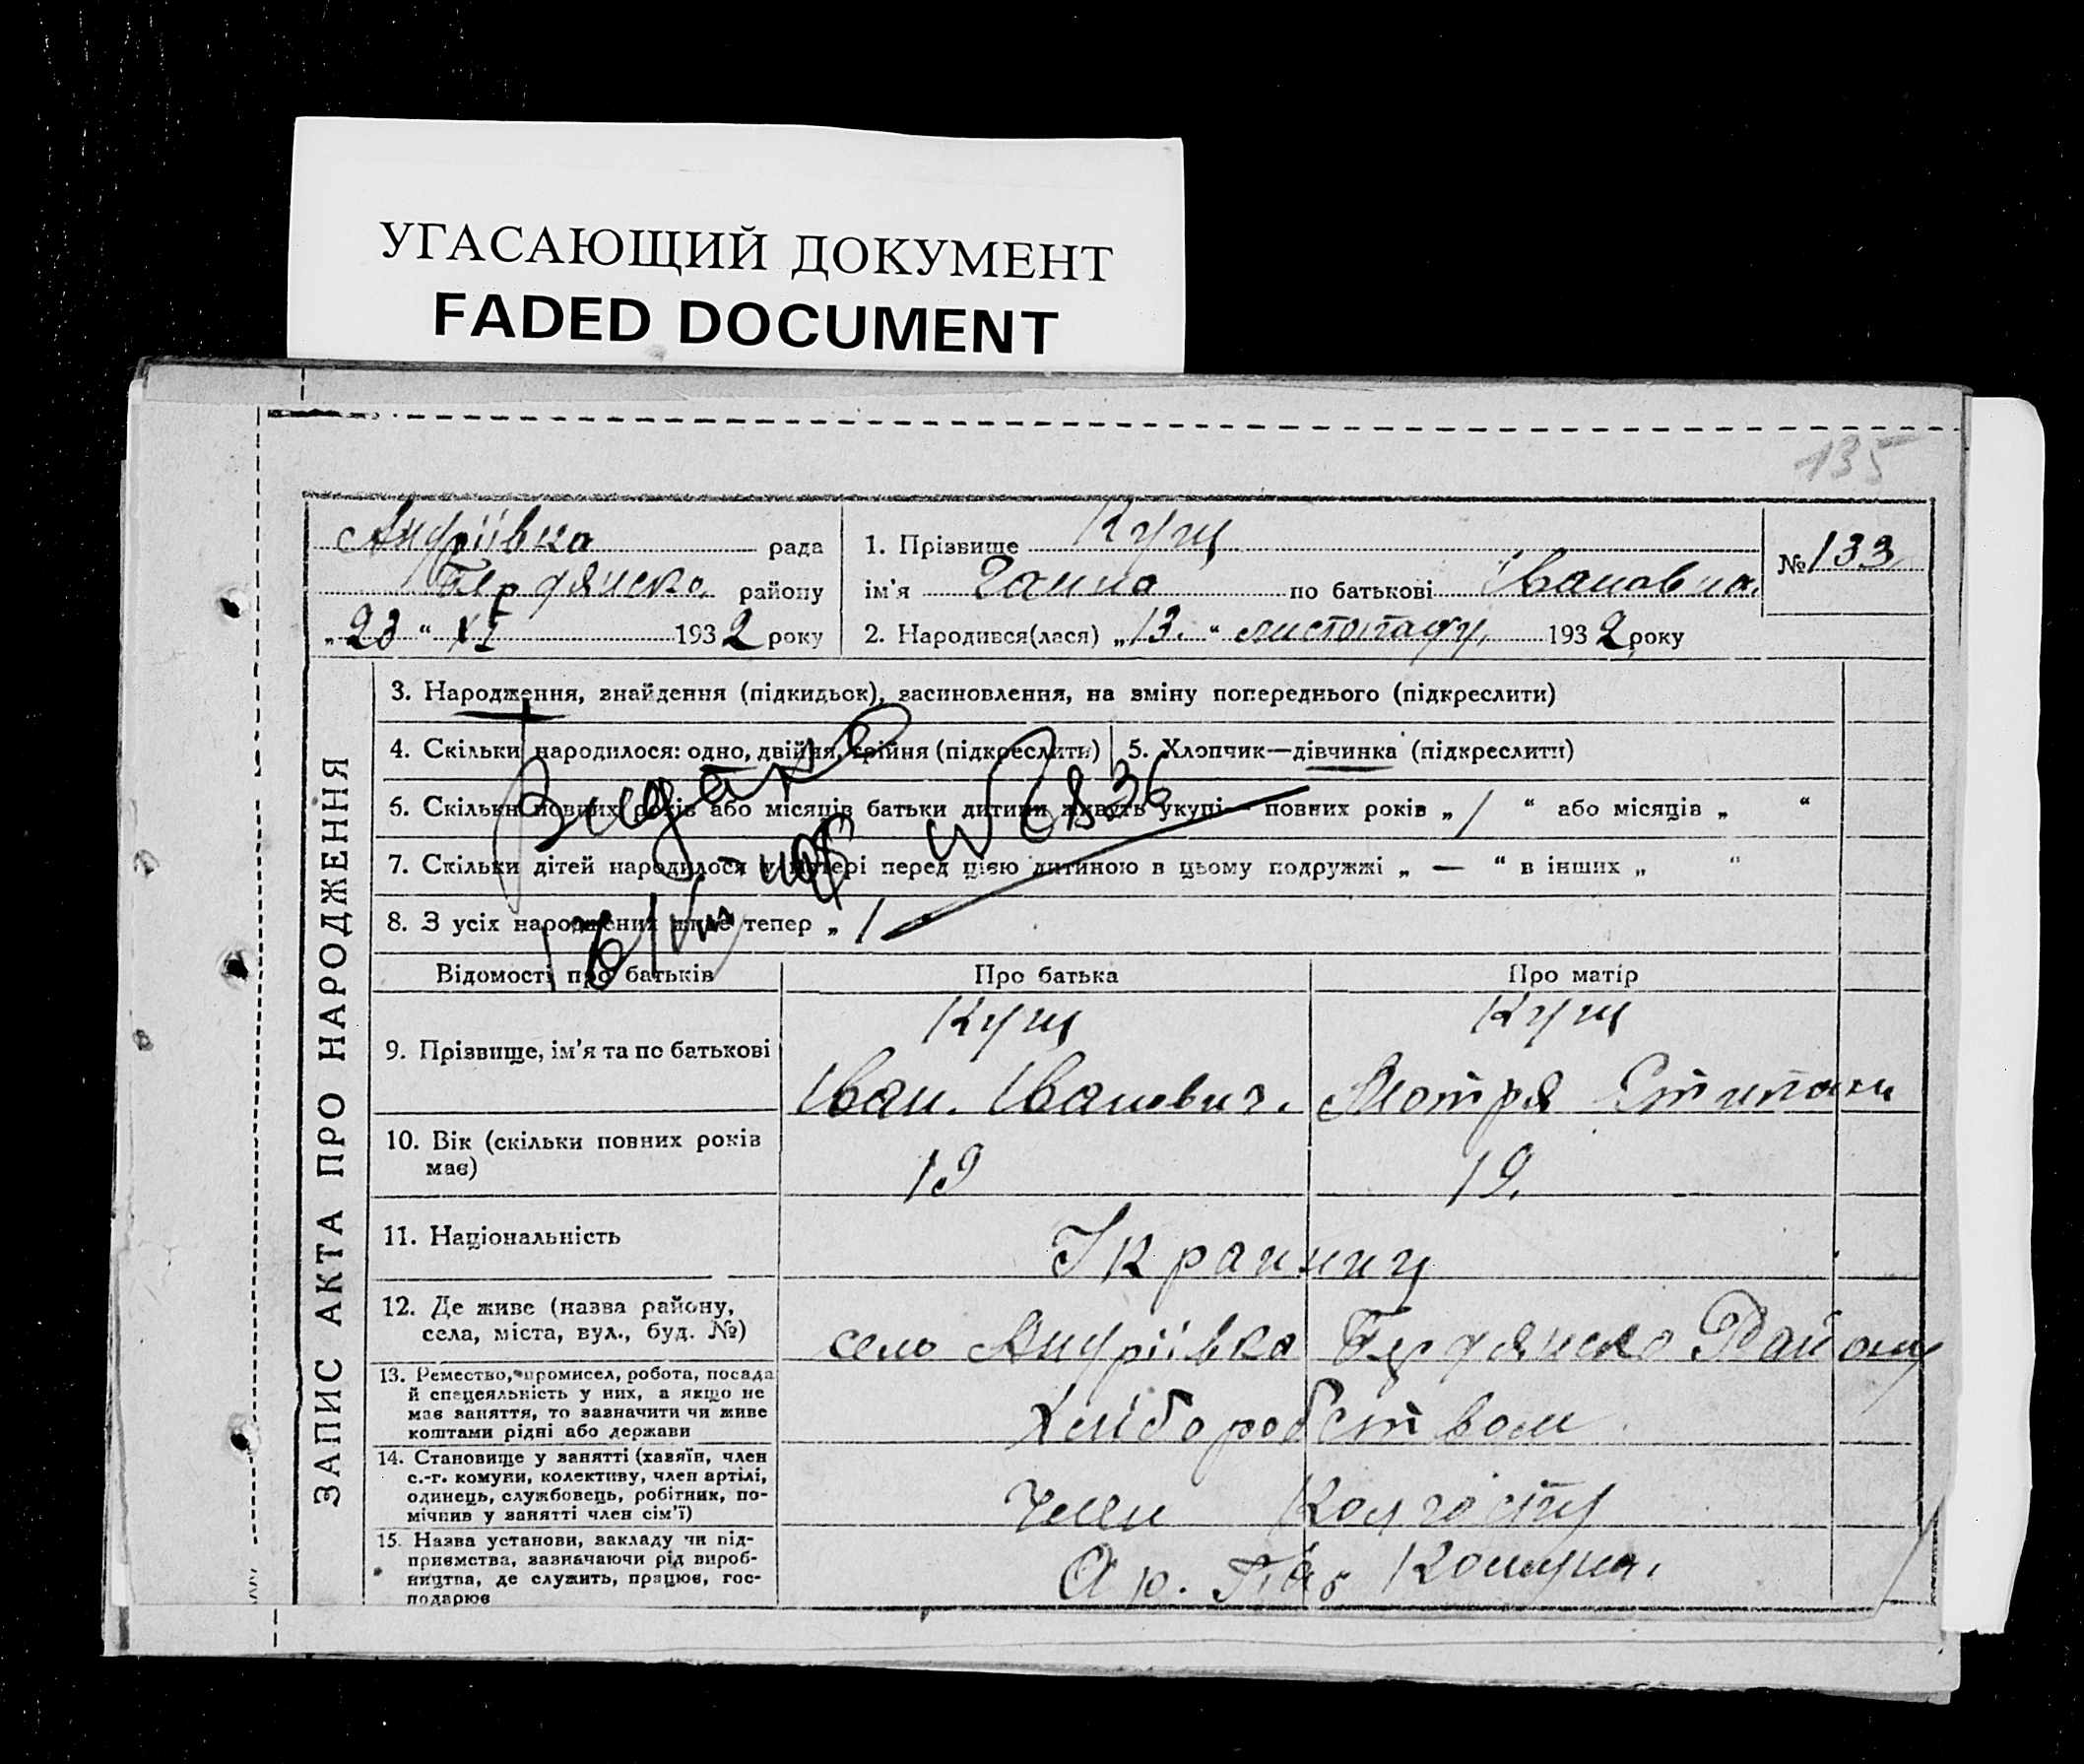 УГАСАЮЩИЙ ДОКУМЕНТ
FADED DOCUMENT
135
Андріівка рада
Бердянско. району
„23“ XI 1932 року
1. Прізвище Кущ
ім'я Ганна по батькові Івановна.
2. Народився(лася) „13.“ листопаду, 1932 року
№ 133
ЗАПИС АКТА ПРО НАРОДЖЕННЯ
3. Народження, знайдення (підкидьок), засиновлення, на зміну попереднього (підкреслити)
4. Скільки народилося: одно, двійня, трійня (підкреслити)
5. Хлопчик—дівчинка (підкреслити)
6. Скільки повних років або місяців батьки дитини живуть укупі— повних років „1“ або місяців „ “
7. Скільки дітей народилося у матері перед цією дитиною в цьому подружжі „—“ в інших „ “
8. З усіх народжених живе тепер „1
Відомості про батьків Про батька Про матір
9. Прізвище, ім'я та по батькові
Кущ
Іван. Іванович.
Кущ
Мотря
10. Вік (скільки повних років має)
19
19.
11. Національність
Украинци
12. Де живе (назва району,
села, міста, вул., буд. №)
село Андріівка Бердянско Району
13. Ремество, промисел, робота, посада
й спецеяльність у них, а якщо не
має заняття, то зазначити чи живе
коштами рідні або держави
Хліборобством
14. Становище у занятті (хазяїн, член
с.-г. комуни, колективу, член артілі,
одинець, службовець, робітник, по-
мічник у занятті член сім'ї)
Член Колгоспу
15. Назва установи, закладу чи під-
приємства, зазначаючи рід вироб-
ництва, де служить, працює, гос-
подарює
Комуна.